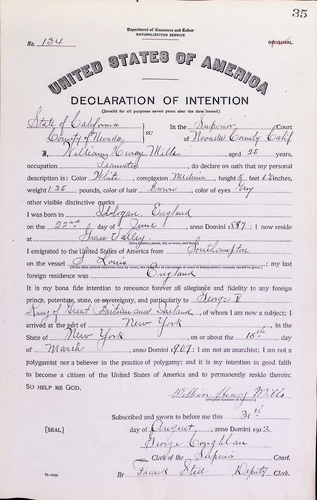 35
Department of Commerce and Labor
NATURALIZATION SERVICE
No. 134
ORIGINAL
UNITED STATES OF AMERICA
DECLARATION OF INTENTION
(Invalid for all purposes seven years after the date hereof)
State of California
County of Nevada ss: In the Superior Court
of Nevada County Calif
I, William Henry Wills, aged 25 years,
occupation, do declare on oath that my personal
description is: Color White, complexion Medium, height 5 feet 6 1/2 inches,
weight 135 pounds, color of hair Brown, color of eyes Grey
other visible distinctive marks
I was born in Illogan, England
on the 22nd day of June, anno Domini 1887; I now reside
at Grass Valley
I emigrated to the United States of America from Southampton
on the vessel St Louis; my last
foreign residence was England
It is my bona fide intention to renounce forever all allegiance and fidelity to any foreign
prince, potentate, state, or sovereignty, and particularly to George V
King of Great Britain and Ireland, of whom I am now a subject; I
arrived at the port of New York, in the
State of New York on or about the 16th day
of March, anno Domini 1907; I am not an anarchist; I am not a
polygamist nor a believer in the practice of polygamy; and it is my intention in good faith
to become a citizen of the United States of America and to permanently reside therein:
SO HELP ME GOD.
William Henry Wills
Subscribed and sworn to before me this 31st
[SEAL] day of August, anno Domini 1912
George Coughlan
Clerk of the Superior Court.
By Frank Steel Deputy Clerk.